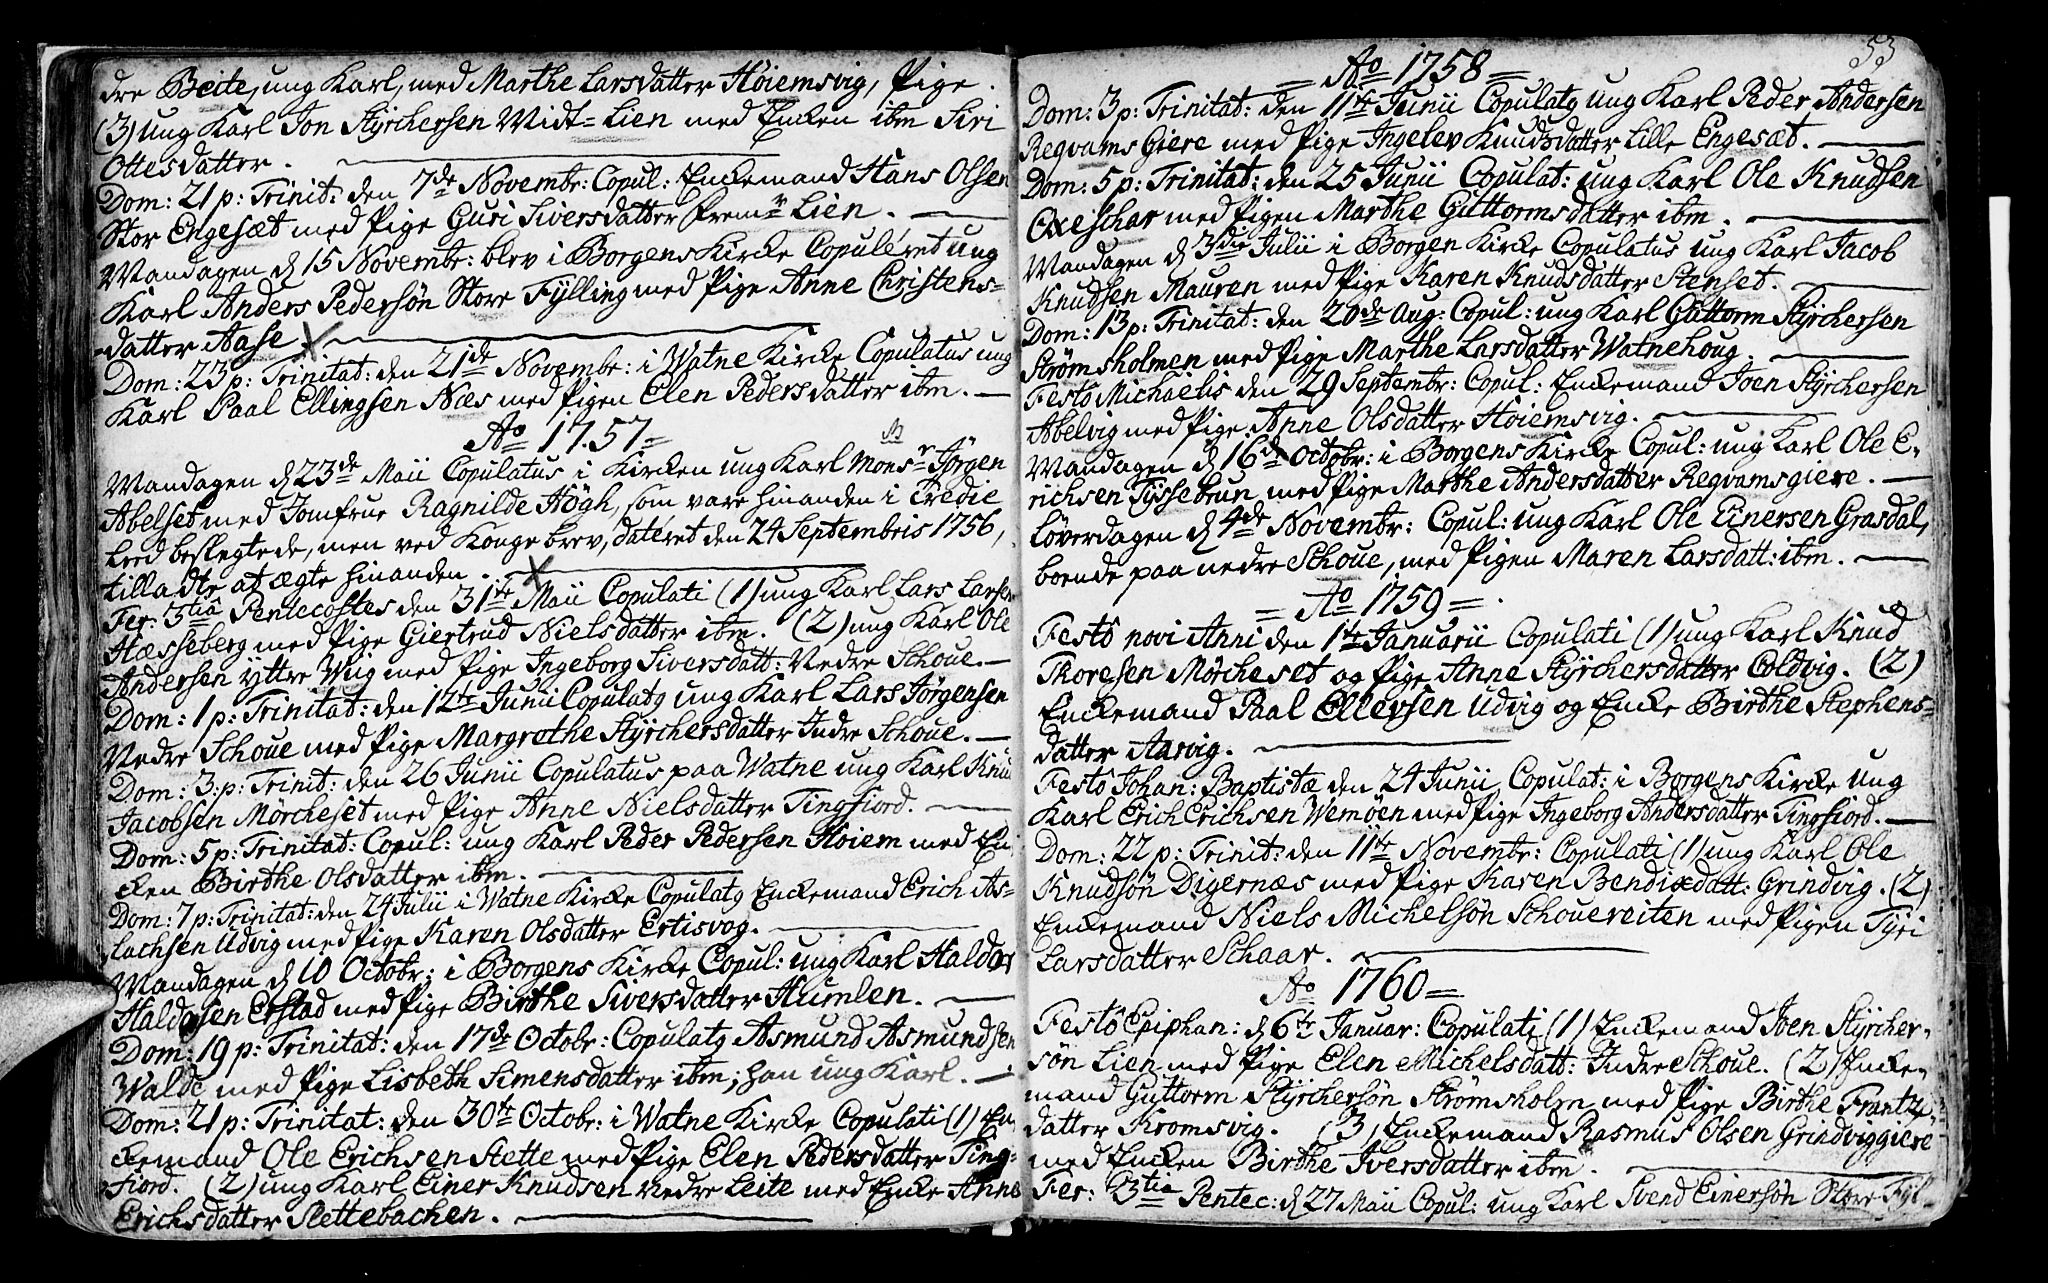 dre Beite, ung Karl, med Marthe Larsdatter Höiemsvig, Pige.
(3) ung Karl Jon Styrchersen Midt=Lien med Encken ibm Siri
Ottesdatter.
Dom: 21 p: Trinit: den 7de Novembr: Copul: Enckemand Hans Olsen
Stor Engesæt med Pige Guri Siversdatter Frem Lien.
Mandagen d 15 Novembr: blev i Borgens Kircke Copuléret ung
Karl Anders Pedersön Store Fylling med Pige Anne Christens=
=datter Aase
Dom: 23 p: Trinitat: den 21de Novembr: i Watne Kircke Copulatus ung
Karl Paal Ellingsen Næs med Pigen Elen Pedersdatter ibm.
Ao 1757=
Mandagen d 23de Maii Copulatus i Kircken ung Karl Monsr Jörgen
Abelset med Jomfrue Ragnilde Högh, som vare hinanden i Tredie
Leed beslegtede, men ved Konge brev, dateret den 24 Septembris 1756,
tilladtes at ægte hinanden.
Fer: 3tia Pentecostes den 31te Maii Copulati (1) ung Karl Lars Larsen
Hæsseberg med Pige Giertrud Nielsdatter ibm. (2) ung Karl Ole
Andersen yttre Wiig med Pige Ingeborg Siversdatt: Nedre Schoue.
Dom: 1 p: Trinitat: den 12te Junii Copulatq ung Karl Lars Jörgensen
Nedre Schoue med Pige Margrethe Styrchersdatter Indre Schoue.
Dom: 3: p: Trinit: den 26 Junii Copulatus paa Watne ung Karl Knud
Jacobsen Mörcheset med Pige Anne Nielsdatter Tingfiord.
Dom: 5 p: Trinitat: Copul: ung Karl Peder Pedersen Höiem med En
cken Birthe Olsdatter ibm.
Dom: 7 p: Trinitat: den 24 Julii i Watne Kircke Copulatq Enckemand Erich As=
lachsen Udvig med Pige Karen Olsdatter Ertisvog.
Mandagen d 10 Octobr: i Borgens Kircke Copul: ung Karl Haldor
Haldorsen Erstad med Pige Birthe Siversdatter Humlen.
Dom: 19 p: Trinitat: den 17de Octobr: Copulatq Asmund Asmundsen
Walde med Pige Lisbeth Simensdatter ibm; han ung Karl.
Dom: 21 p: Trinitat: den 30te Octobr: i Watne Kircke Copulati (1) En
ckemand Ole Erichsen Stette med Pige Elen Pedersdatter Ting=
fiord. (2) ung Karl Einer Knudsen Nedre Leite med Encke Anne
Erichsdatter Slettebachen.
53
=Ao 1758=
Dom: 3 p: Trinitat: den 11te Junii Copulatq ung Karl Peder Andersen
Reqvams Giere med Pige Ingelev Knudsdatter Lille Engesæt.
Dom: 5 p: Trinitat: den 25 Junii Copulat: ung Karl Ole Knudsen
Oxeschar med Pigen Marthe Guttormsdatter ibm.
Mandagen d 3die Julii i Borgen Kircke Copulatus ung Karl Jacob
Knudsen Mauren med Pige Karen Knudsdatter Stenset.
Dom: 13 p: Trinitat: den 20de Aug: Copul: ung Karl Guttorm Styrchersen
Strömsholmen med Pige Marthe Larsdatter Watnehoug.
Festo Michaelis den 29 Septembr: Copul: Enckemand Joen Styrchersen
Abelvig med Pige Anne Olsdatter Höiemsvig.
Mandagen d 16de Octobr: i Borgens Kircke Copul: ung Karl Ole E=
richsen Tyssebrun med Pige Marthe Andersdatter Reqvamsgiere.
Löverdagen d 4de Novembr: Copul: ung Karl Ole Einersen Grasdal,
boende paa nedre Schoue, med Pigen Maren Larsdatt: ibm.
=Ao 1759=
Festo novi Anni den 1te Januarii Copulati (1) ung Karl Knud
Thoresen Mörcheset og Pige Anne Styrchersdatter Coldvig. (2)
Enckemand Paal Ellevsen Udvig og Encke Birthe Stephens=
datter Aarvig.
Festo Johan: Baptistæ den 24 Junii Copulat: i Borgens Kircke ung
Karl Erich Erichsen Wemöen med Pige Ingeborg Andersdatter Tingfiord.
Dom: 22 p: Trinit: den 11te Novembr: Copulati (1) ung Karl Ole
Knudsön Digernæs med Pige Karen Bendixdatt: Grindvig. (2)
Enckemand Niels Michelsön Schouereiten med Pigen Tyri
Larsdatter Schaar.
Ao 1760=
Festo Epiphan: d 6te Januar: Copulati (1) Enckemand Joen Styrcher=
sön Lien med Pige Elen Michelsdatt: Indre Schoue. (2) Encke=
mand Guttorm Styrchersön Strömsholm med Pige Birthe Frantz=
datter Kromsvig. (3) Enckemand Rasmus Olsen Grindviggiere
med Encken Birthe Iversdatter ibm.
Fer: 3tia Pentec: d 27 Maii Copul: ung Karl Svend Einersön Store Fyl=